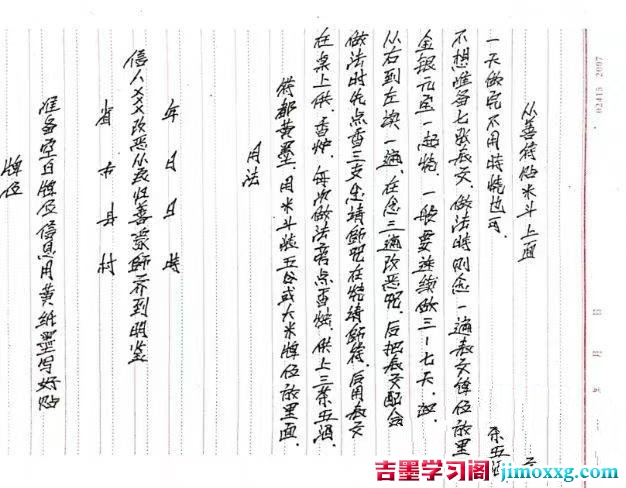 牌位
准备空白牌位信息用黄纸墨写好贴
省市县村
信人XXX改恶从良归善蒙师一齐到明鉴
年日日时
用法
符都黄墨.用米斗装五谷或大米牌位放里面.
在桌上供一香炉.每次做法前点香烛.供上三茶五酒.
做法时先点香三支念请师咒在烧请师符.后用表文
从右到左读一遍.在念三遍改恶咒.后把表文配合
金银元宝一起烧.一般要连续做三-七天.如
不想准备七张表文.做法时则念一遍表文牌位放里
一天做完不用时烧也可.
茶五酒
从善符贴米斗上面
02415 2097
年 月 日
吉墨学习阁 jimoxxg.com